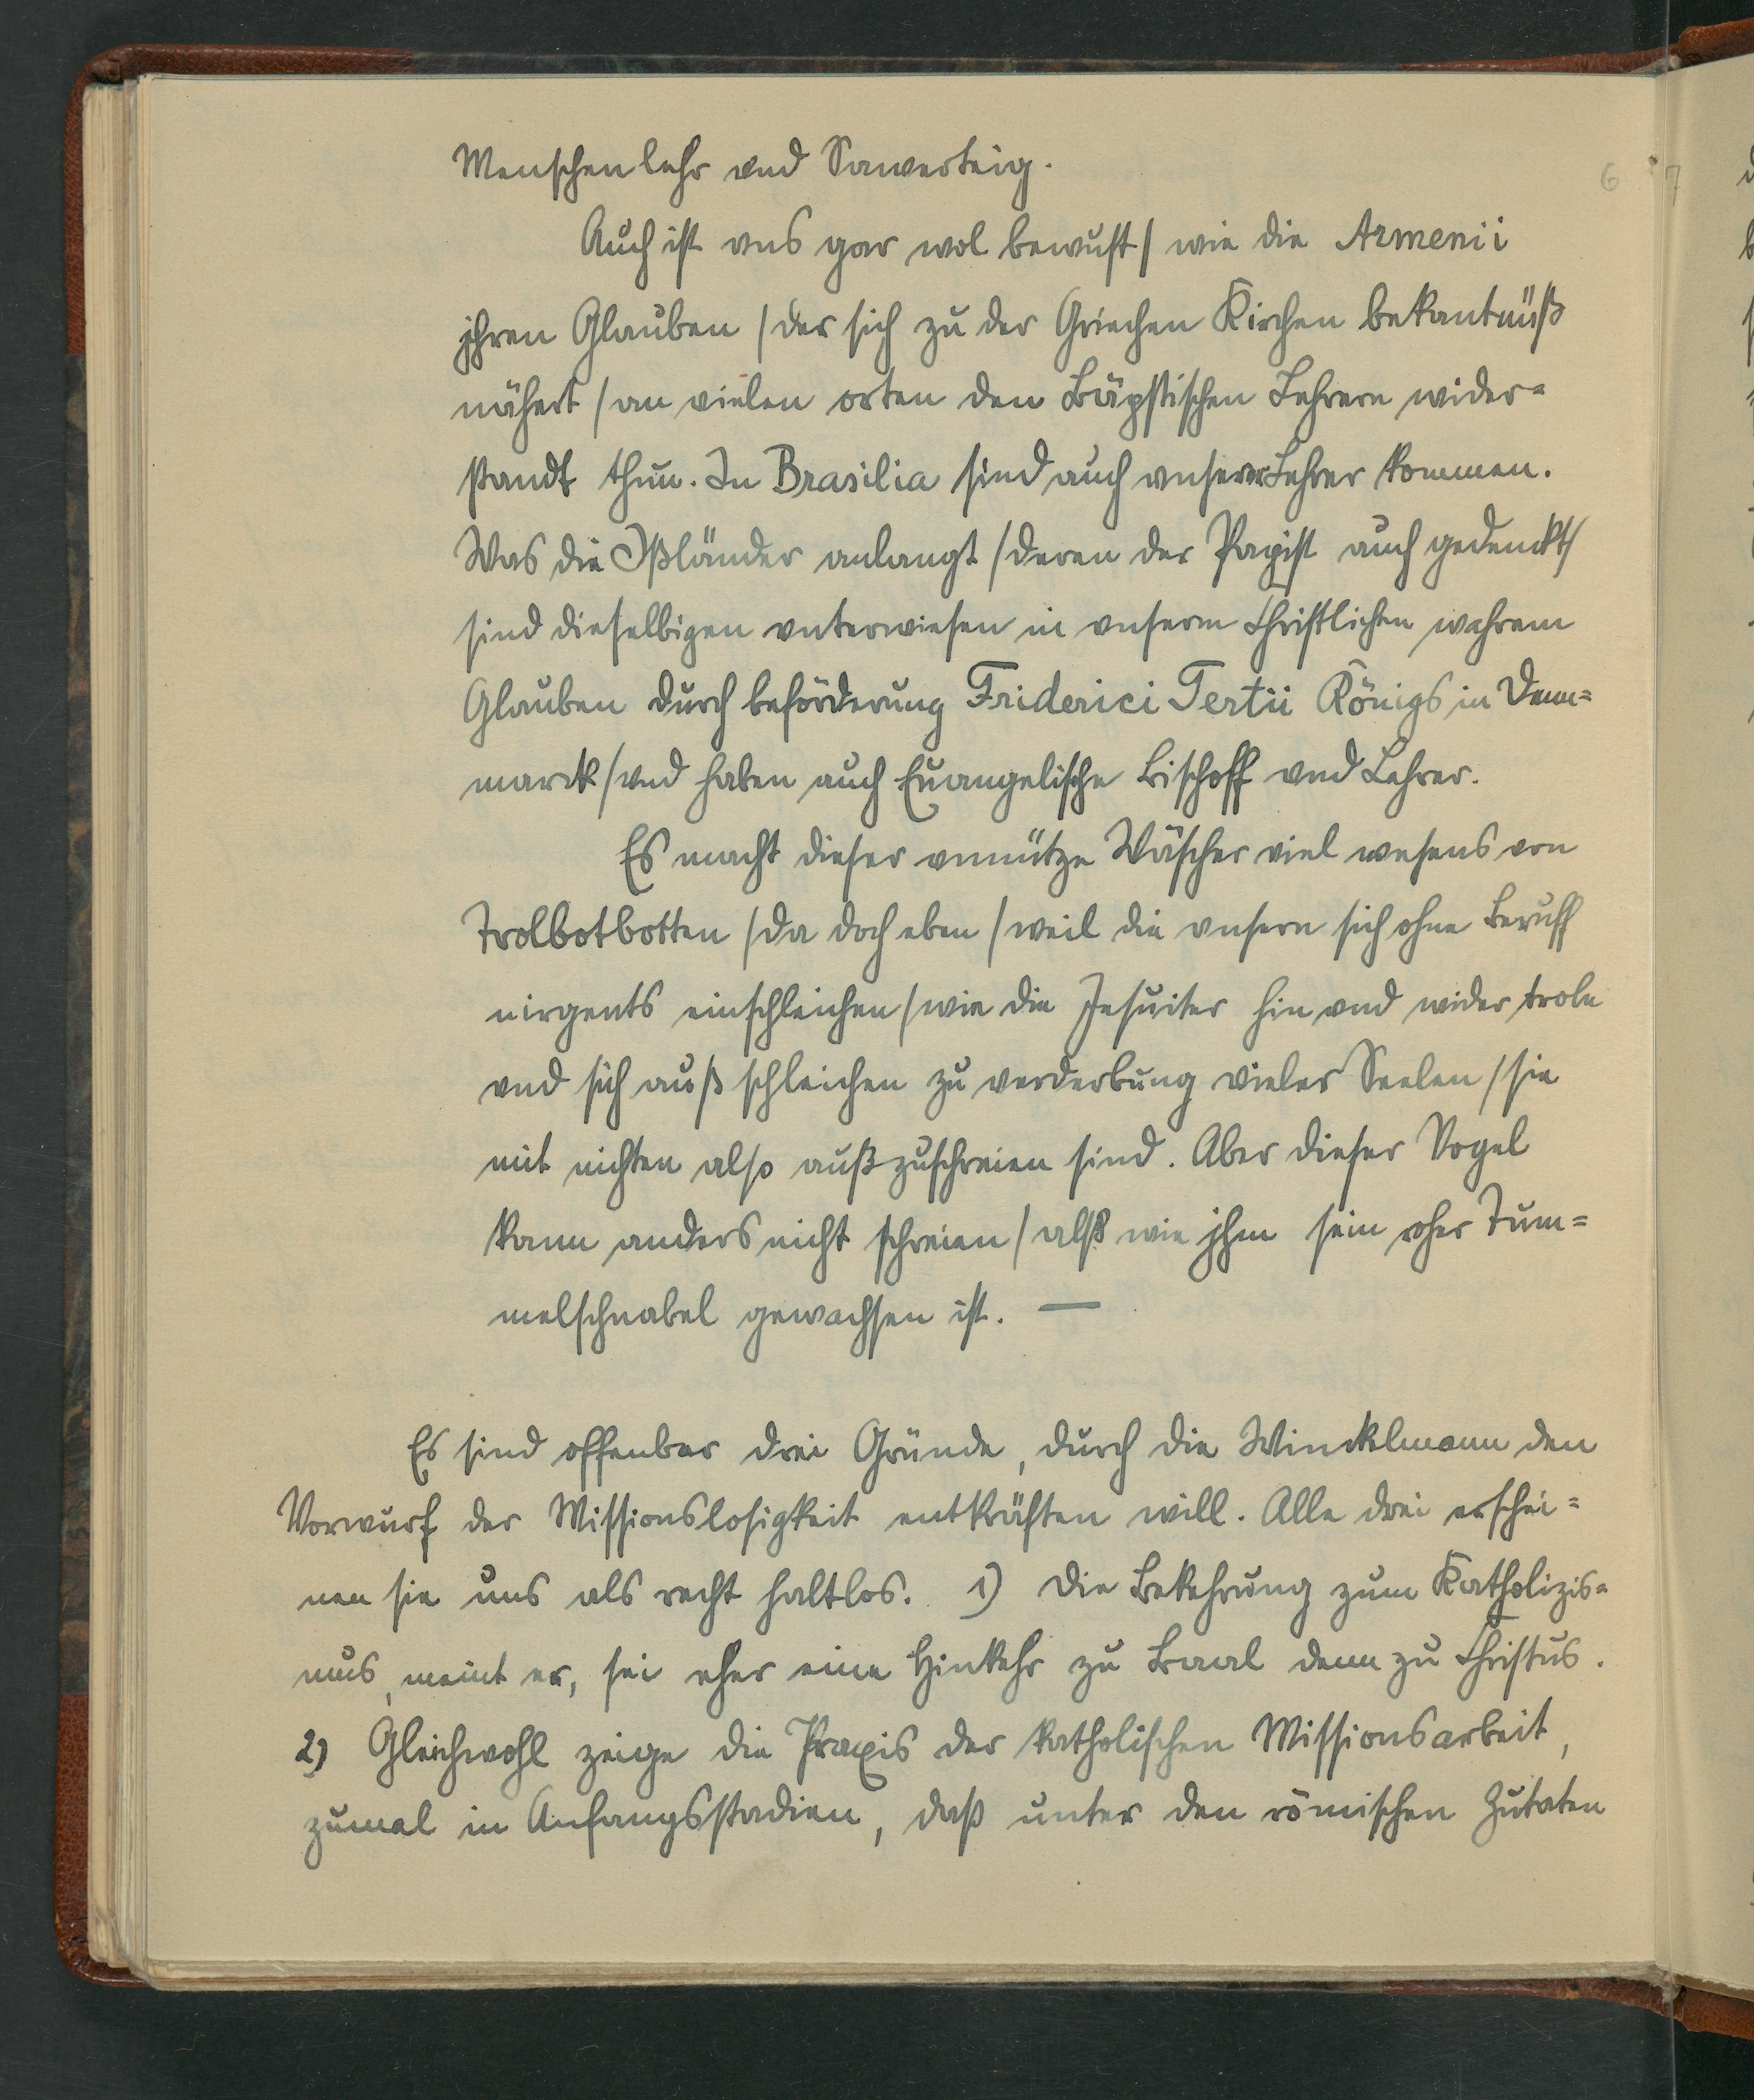 Menschenlehr vnd Sawerteig.
6 7
Auch ist vns gar wol bewust / wie die Armenii
jhren Glauben / der sich zu der Griechen Kirchen bekantnüß
nähert / an vielen orten den Bäpstischen Lehrern wider=
standt thun. In Brasilia sind auch vnserer Lehrer kommen.
Was die Ißländer anlangt / deren der Papist auch gedenckt /
sind dieselbigen vnterwiesen in vnserm Christlichen wahrem
Glauben durch beförderung Friderici Tertii Königs in Denn=
marck / vnd haben auch Euangelische Bischoff vnd Lehrer.
Es macht dieser vnnütze Wäscher viel wesens von
Trolbotbotten / da doch eben / weil die vnsern sich ohne Beruff
nirgents einschleichen / wie die Jesuiter hin vnd wider troln
vnd sich auß schleichen zu verderbung vieler Seelen / sie
mit nichten also außzuschreien sind. Aber dieser Vogel
kann anders nicht schreien / alß wie jhm sein roher Tum=
melschnabel gewachsen ist. —
Es sind offenbar drei Gründe, durch die Winckelmann den
Vorwurf der Missionslosigkeit entkräften will. Alle drei erschei=
nen sie uns als recht haltlos. 1) Die Bekehrung zum Katholizis=
mus, meint er, sei eher eine Hinkehr zu Baal denn zu Christus.
2) Gleichwohl zeige die Praxis der katholischen Missionsarbeit,
zumal in Anfangsstadien, daß unter den römischen Zutaten